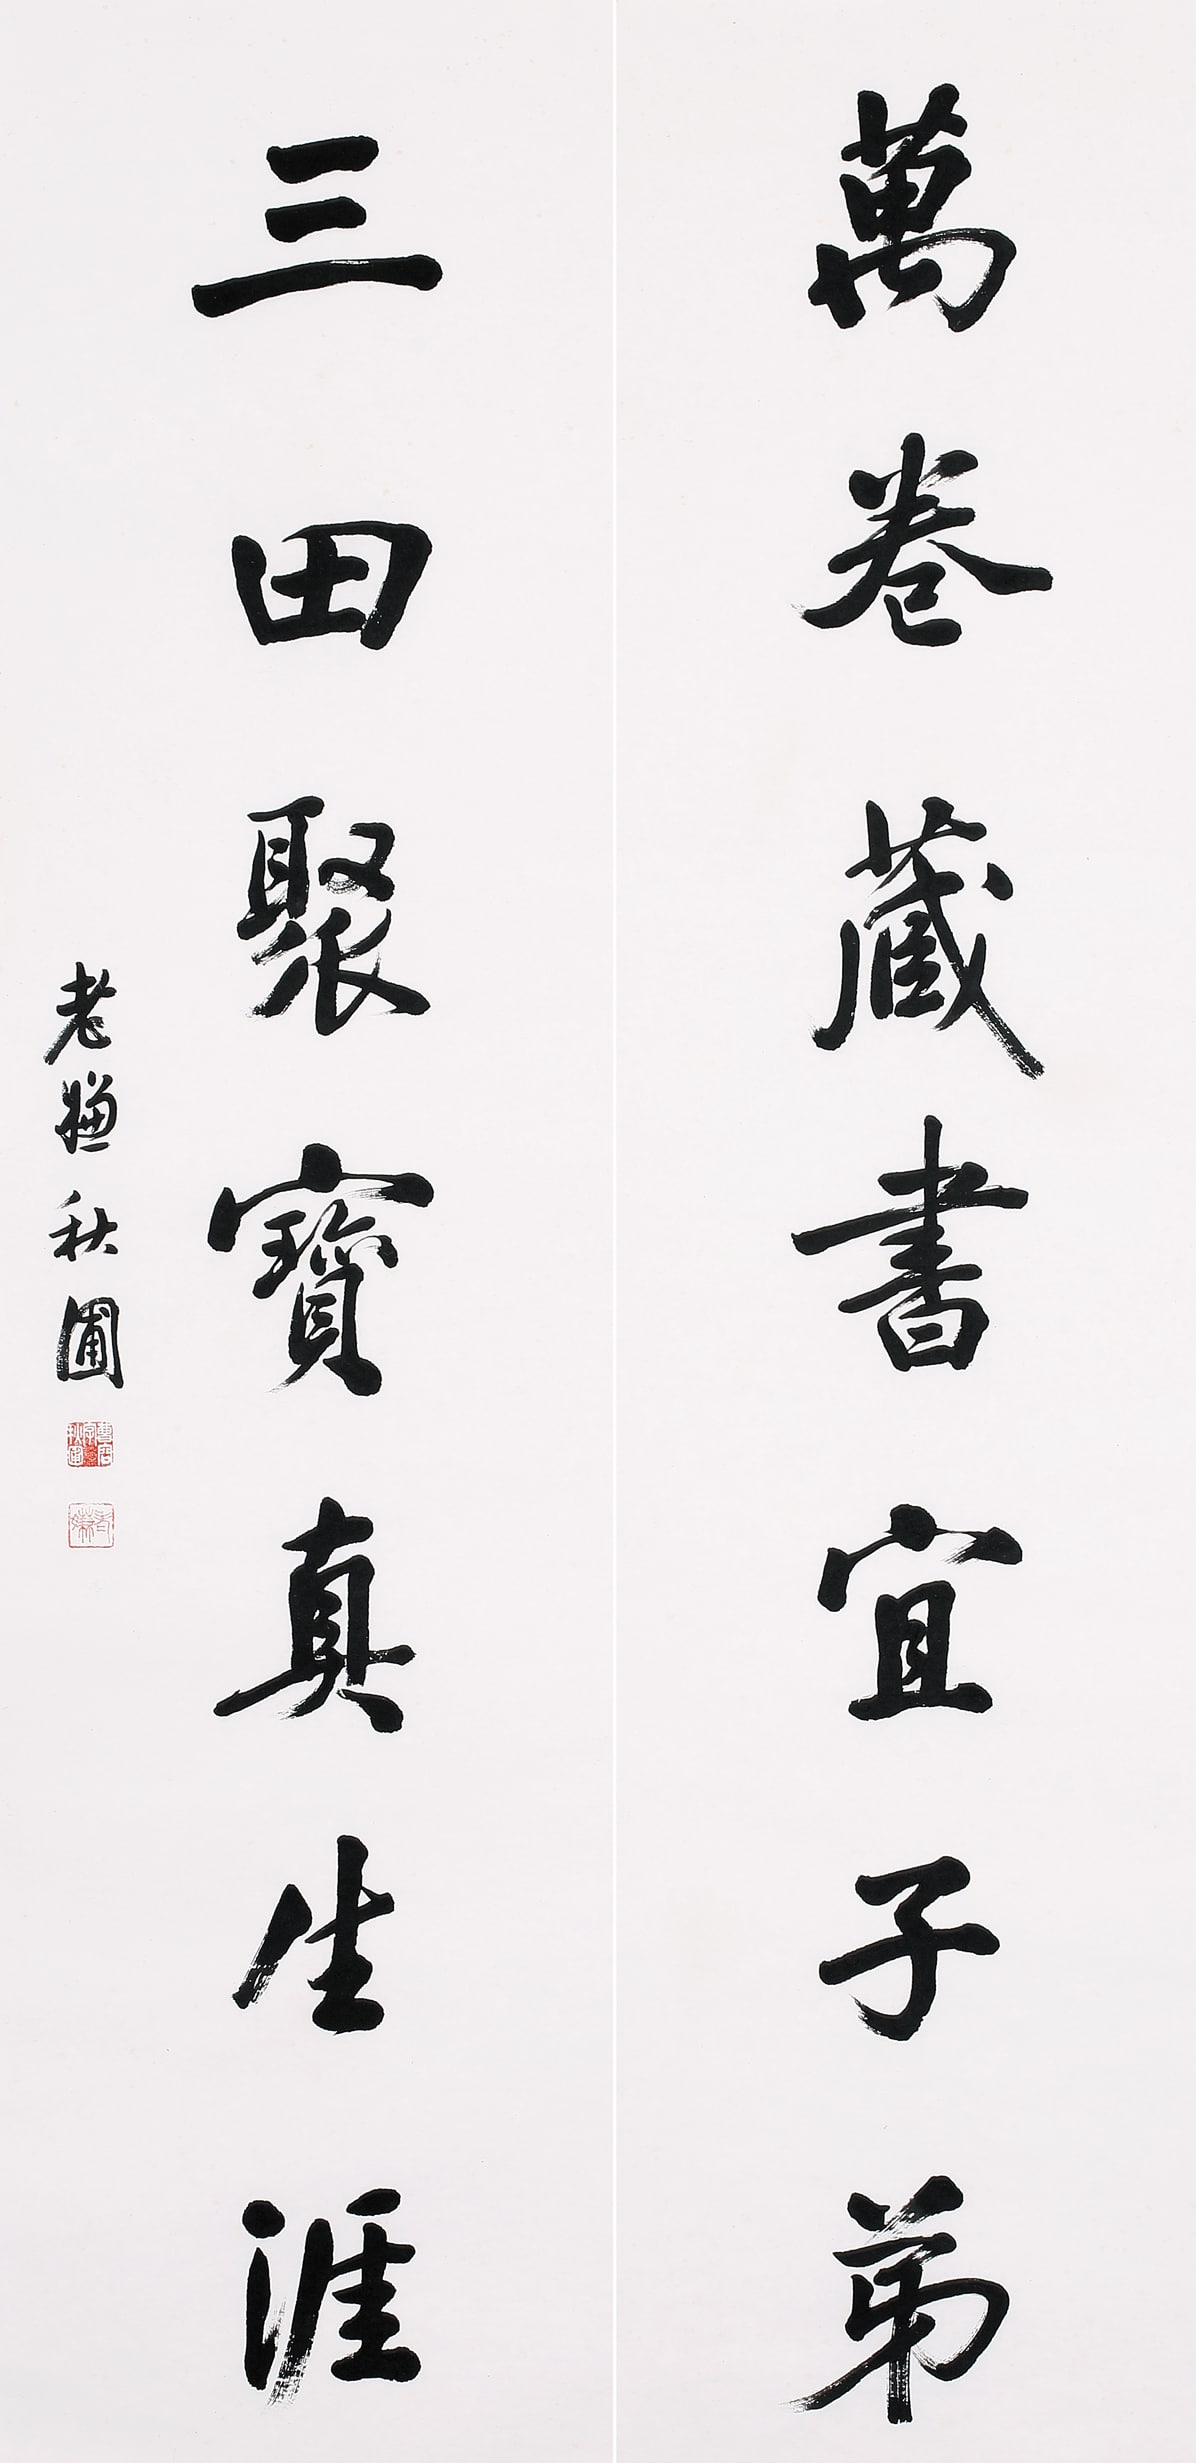 萬卷藏書宜子弟
三田聚寶真生涯
老嫌秋圃